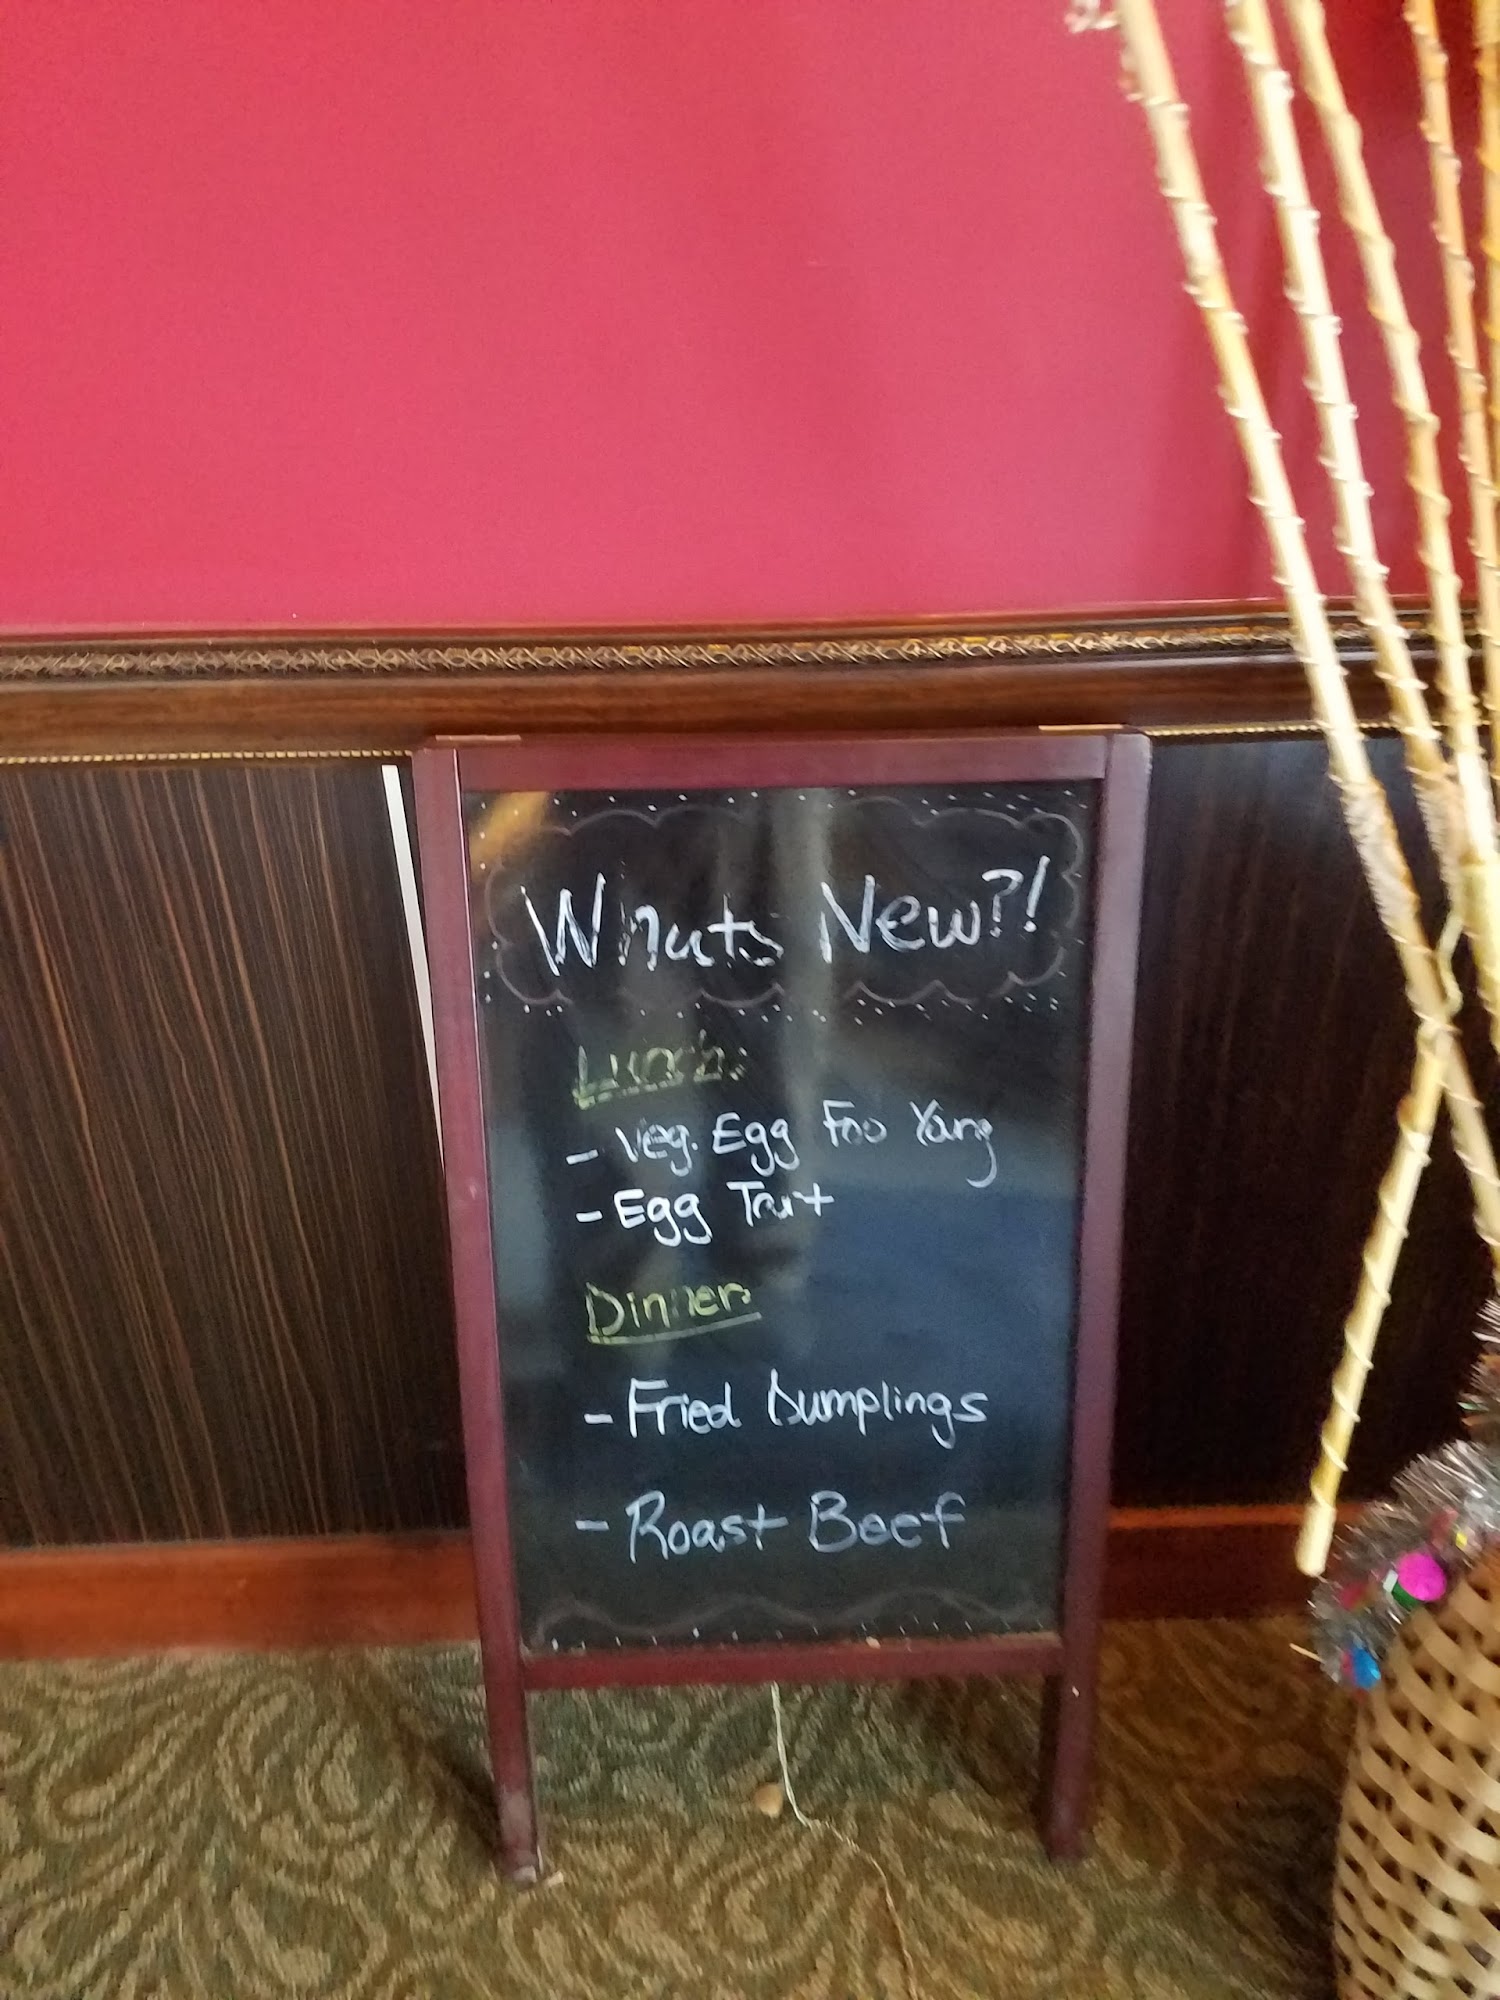 Whats New?!
Lunch:
- Veg. Egg Foo Yang
- Egg Tart
Dinner:
- Fried Dumplings
- Roast Beef